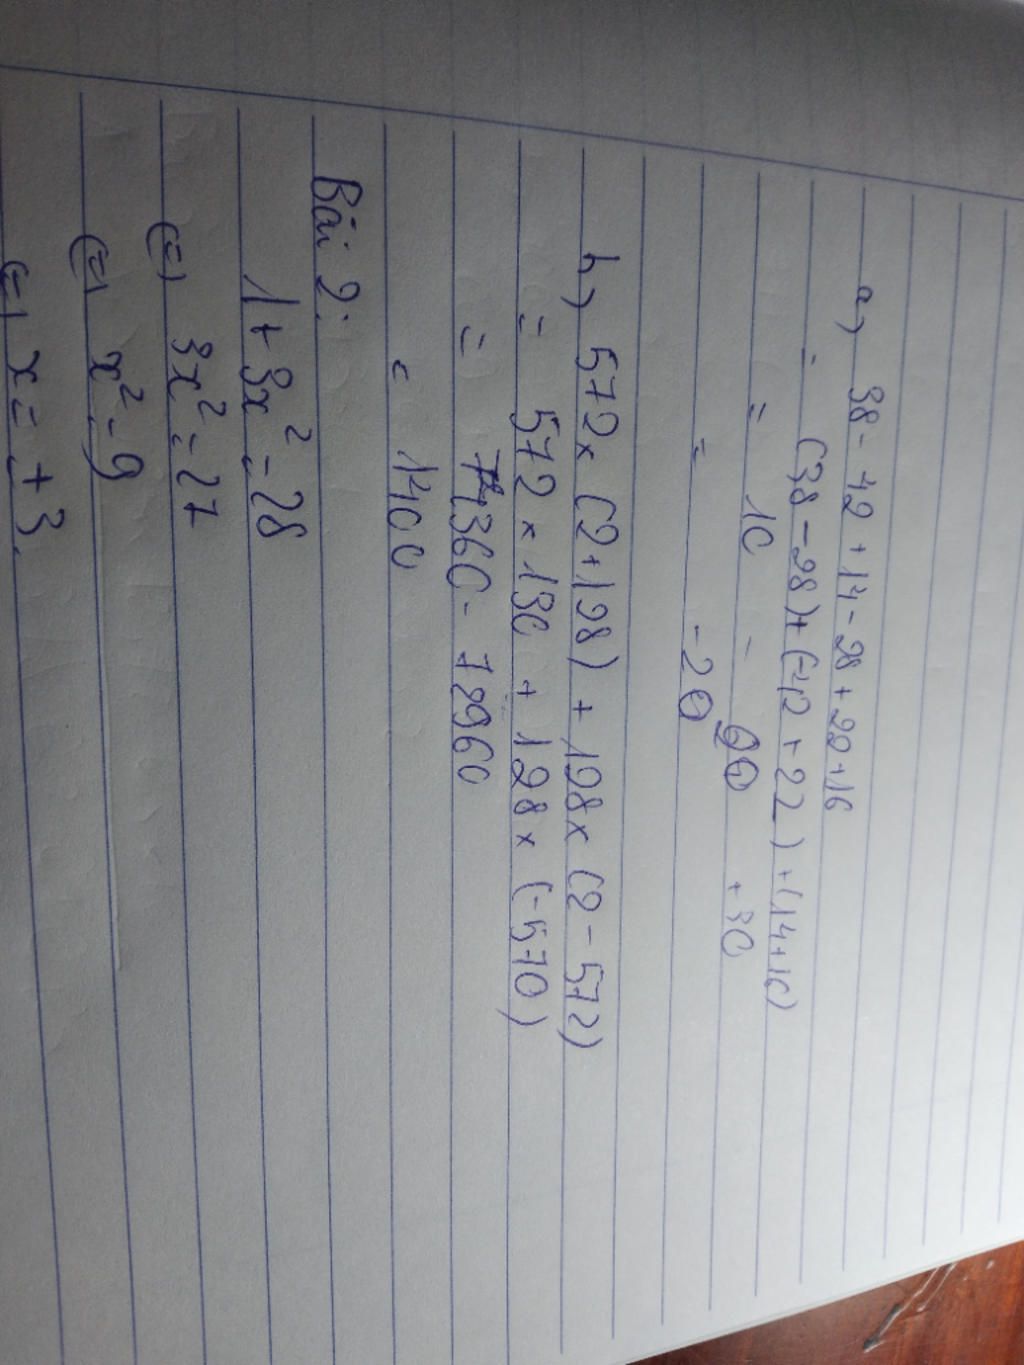 a, 38 - 42 + 14 - 28 + 22 + 16
= (38 - 28) + (-42 + 22) + (14 + 16)
= 10 - 20 + 30
= -20
b, 572 x (2 + 128) + 128 x (2 - 572)
= 572 x 130 + 128 x (-570)
= 74360 - 72960
= 1400
Bài 2:
1 + 3x² = 28
(=) 3x² = 27
(=) x² = 9
(=) x = ± 3